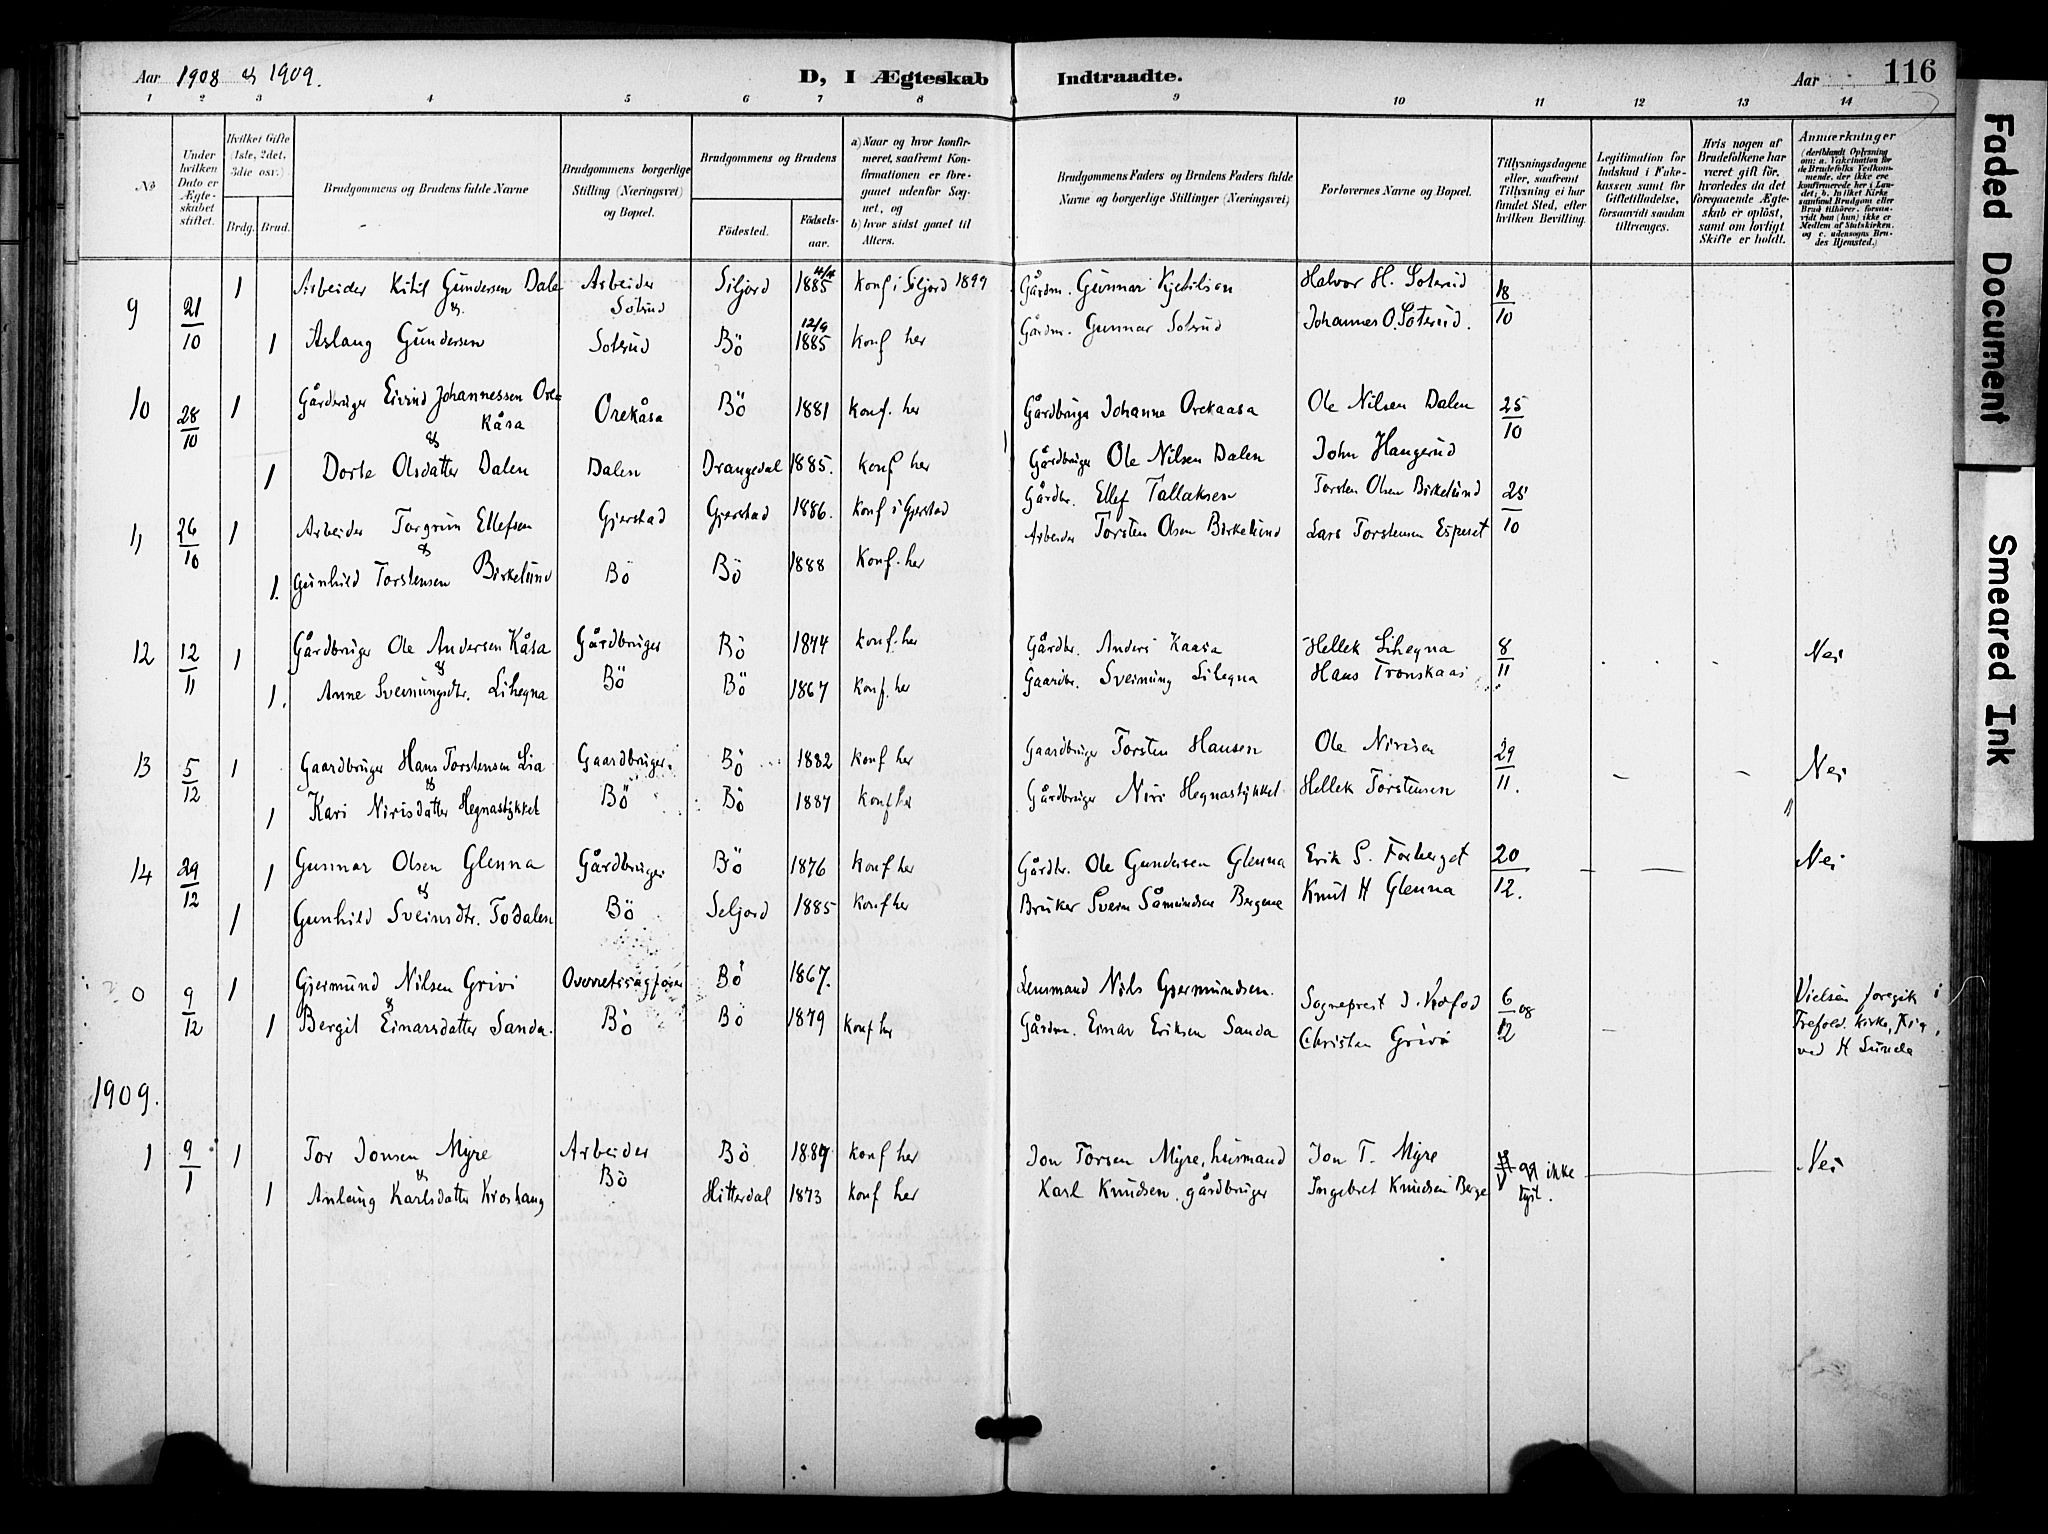 Aar 1908 & 1909.
D, I Ægteskab Indtraadte.
Aar
116
1 2 3 4 5 6 7 8 9 10 11 12 13 14
No
Under hvilken Dato er Ægteskabet stiftet.
Hvilket Gifte (1ste, 2det, 3die osv.)
Brdg. Brud.
Brudgommens og Brudens fulde Navne
Brudgommens borgerlige Stilling (Næringsvei) og Bopæl.
Brudgommens og Brudens
Fødested.
Fødselsaar.
a) Naar og hvor konfirmeret, saafremt Konfirmationen er foregaaet udenfor Sognet, og
b) hvor sidst gaaet til Alters.
Brudgommens Faders og Brudens Faders fulde Navne og borgerlige Stillinger (Næringsvei)
Forlovernes Navne og Bopæl.
Tillysningsdagene eller, saafremt Tillysning ei har fundet Sted, efter hvilken Bevilling.
Legitimation for Indskud i Enkekassen samt for Giftetilladelse, forsaavidt saadan tiltrænges.
Hvis nogen af Brudefolkene har været gift før, hvorledes da det foregaaende Ægteskab er opløst, samt om lovligt Skifte er holdt.
Anmærkninger (deriblandt Oplysning om: a. Vakcination for de Brudefolks Vedkommende, der ikke ere konfirmerede her i Landet; b. hvilket Kirkesamfund Brudgom eller Brud tilhører, forsaavidt han (hun) ikke er Medlem af Statskirken, og c. udensogns Brudes Hjemsted.)
9 21/10 1 Arbeider Kitil Gundersen Dale & Arbeider Sotrud Siljord 4/4 1885 Konf i Siljord 1899 Gårdm. Gunnar Kjetilsen Halvor H. Soterud 18/10
1 Aslaug Gundersen Sotrud Bö 12/9 1885 Konf her Gårdm. Gunnar Sotrud Johannes O. Soterud.
10 28/10 1 Gårdbruger Eivind Johannessen Orekåsa & Orekåsa Bö 1881 Konf. her Gårdbruge Johanne Orekaasa Ole Nilsen Dalen 25/10
1 Dorte Olsdatter Dalen Dalen Drangedal 1885. Konf her Gårdbruger Ole Nilsen Dalen John Haugerud
11 26/10 1 Arbeider Torgrim Ellefsen & Gjerstad Gjerstad 1886. Konf i Gjerstad Gårdbr. Ellef Tallaksen Torsten Olsen Birkelund 25/10
1. Gunhild Torstensen Birkelund Bö Bö 1888 Konf. her Arbeider Torsten Olsen Birkelund Lars Torstensen Espeset
12 12/11 1 Gårdbruger Ole Andersen Kåsa & Gårdbruger Bö Bö 1874 Konf. her Gårdbr. Anders Kaasa Hellek Lihegna 8/11 Nei
1. Anne Sveinungsdtr. Lihegna Bö 1867 Konf. her Gaardbr. Sveinung Lihegna Hans Tronskaas
13 5/12 1 Gaardbruger Hans Torstensen Lia & Gaardbruger Bö Bö 1882 Konf her Gaardbruger Torsten Hansen Ole Nirisen 29/11. - - Nei
1 Kari Nirisdatter Hegnastykket Bö 1887 Konf her Gårdbruger Niri Hegnastykket Hellek Torstensen
14 29/12 1 Gunnar Olsen Glenna & Gårdbruger Bö Bö 1876 Konf her Gårdbr. Ole Gundersen Glenna Erik S. Forberget 20/12. - - Nei
1 Gunhild Sveinsdtr. Todalen Seljord 1885 Konf her Bruker Svein Såmundsen Bergene Knut H Glenna
0 9/12 1 Gjermund Nilsen Grivi & Overretssagfører Bö Bö 1867. Lensmand Nils Gjermundsen. Sogneprest J. Kofod 6/12 08 - Vielsen foregik i
1 Bergit Einarsdatter Sanda. Bö 1879 Konf her Gårdm. Einar Eriksen Sanda Christen Grivi kirke, ved H Sunde
1909.
1 9/1 1 Tor Jonsen Myre & Arbeider Bö Bö 1889 Konf her Jon Torsen Myre, husmand Jon T. Myre ikke lyst. Nei
1 Anlaug Karlsdatter Kroshaug Hitterdal 1873 Konf her Karl Knudsen. gårdbruger Ingebret Knudsen Berge
Faded Document
Smeared Ink